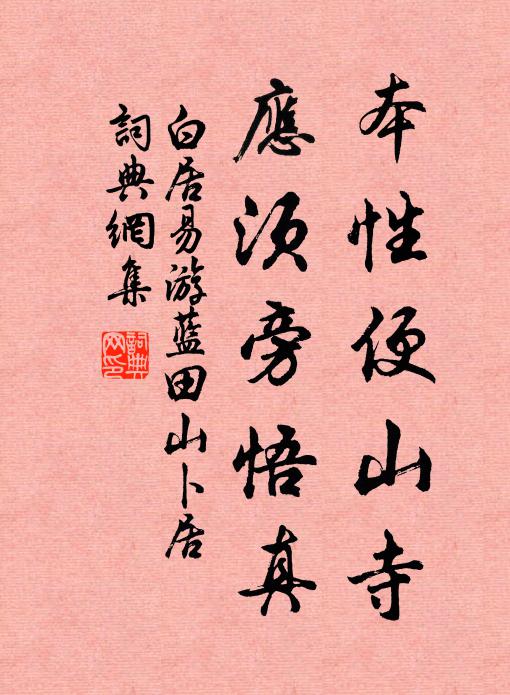 本性便山寺
應須旁悟真
白居易游藍田山卜居
詞典網集
詞典網印